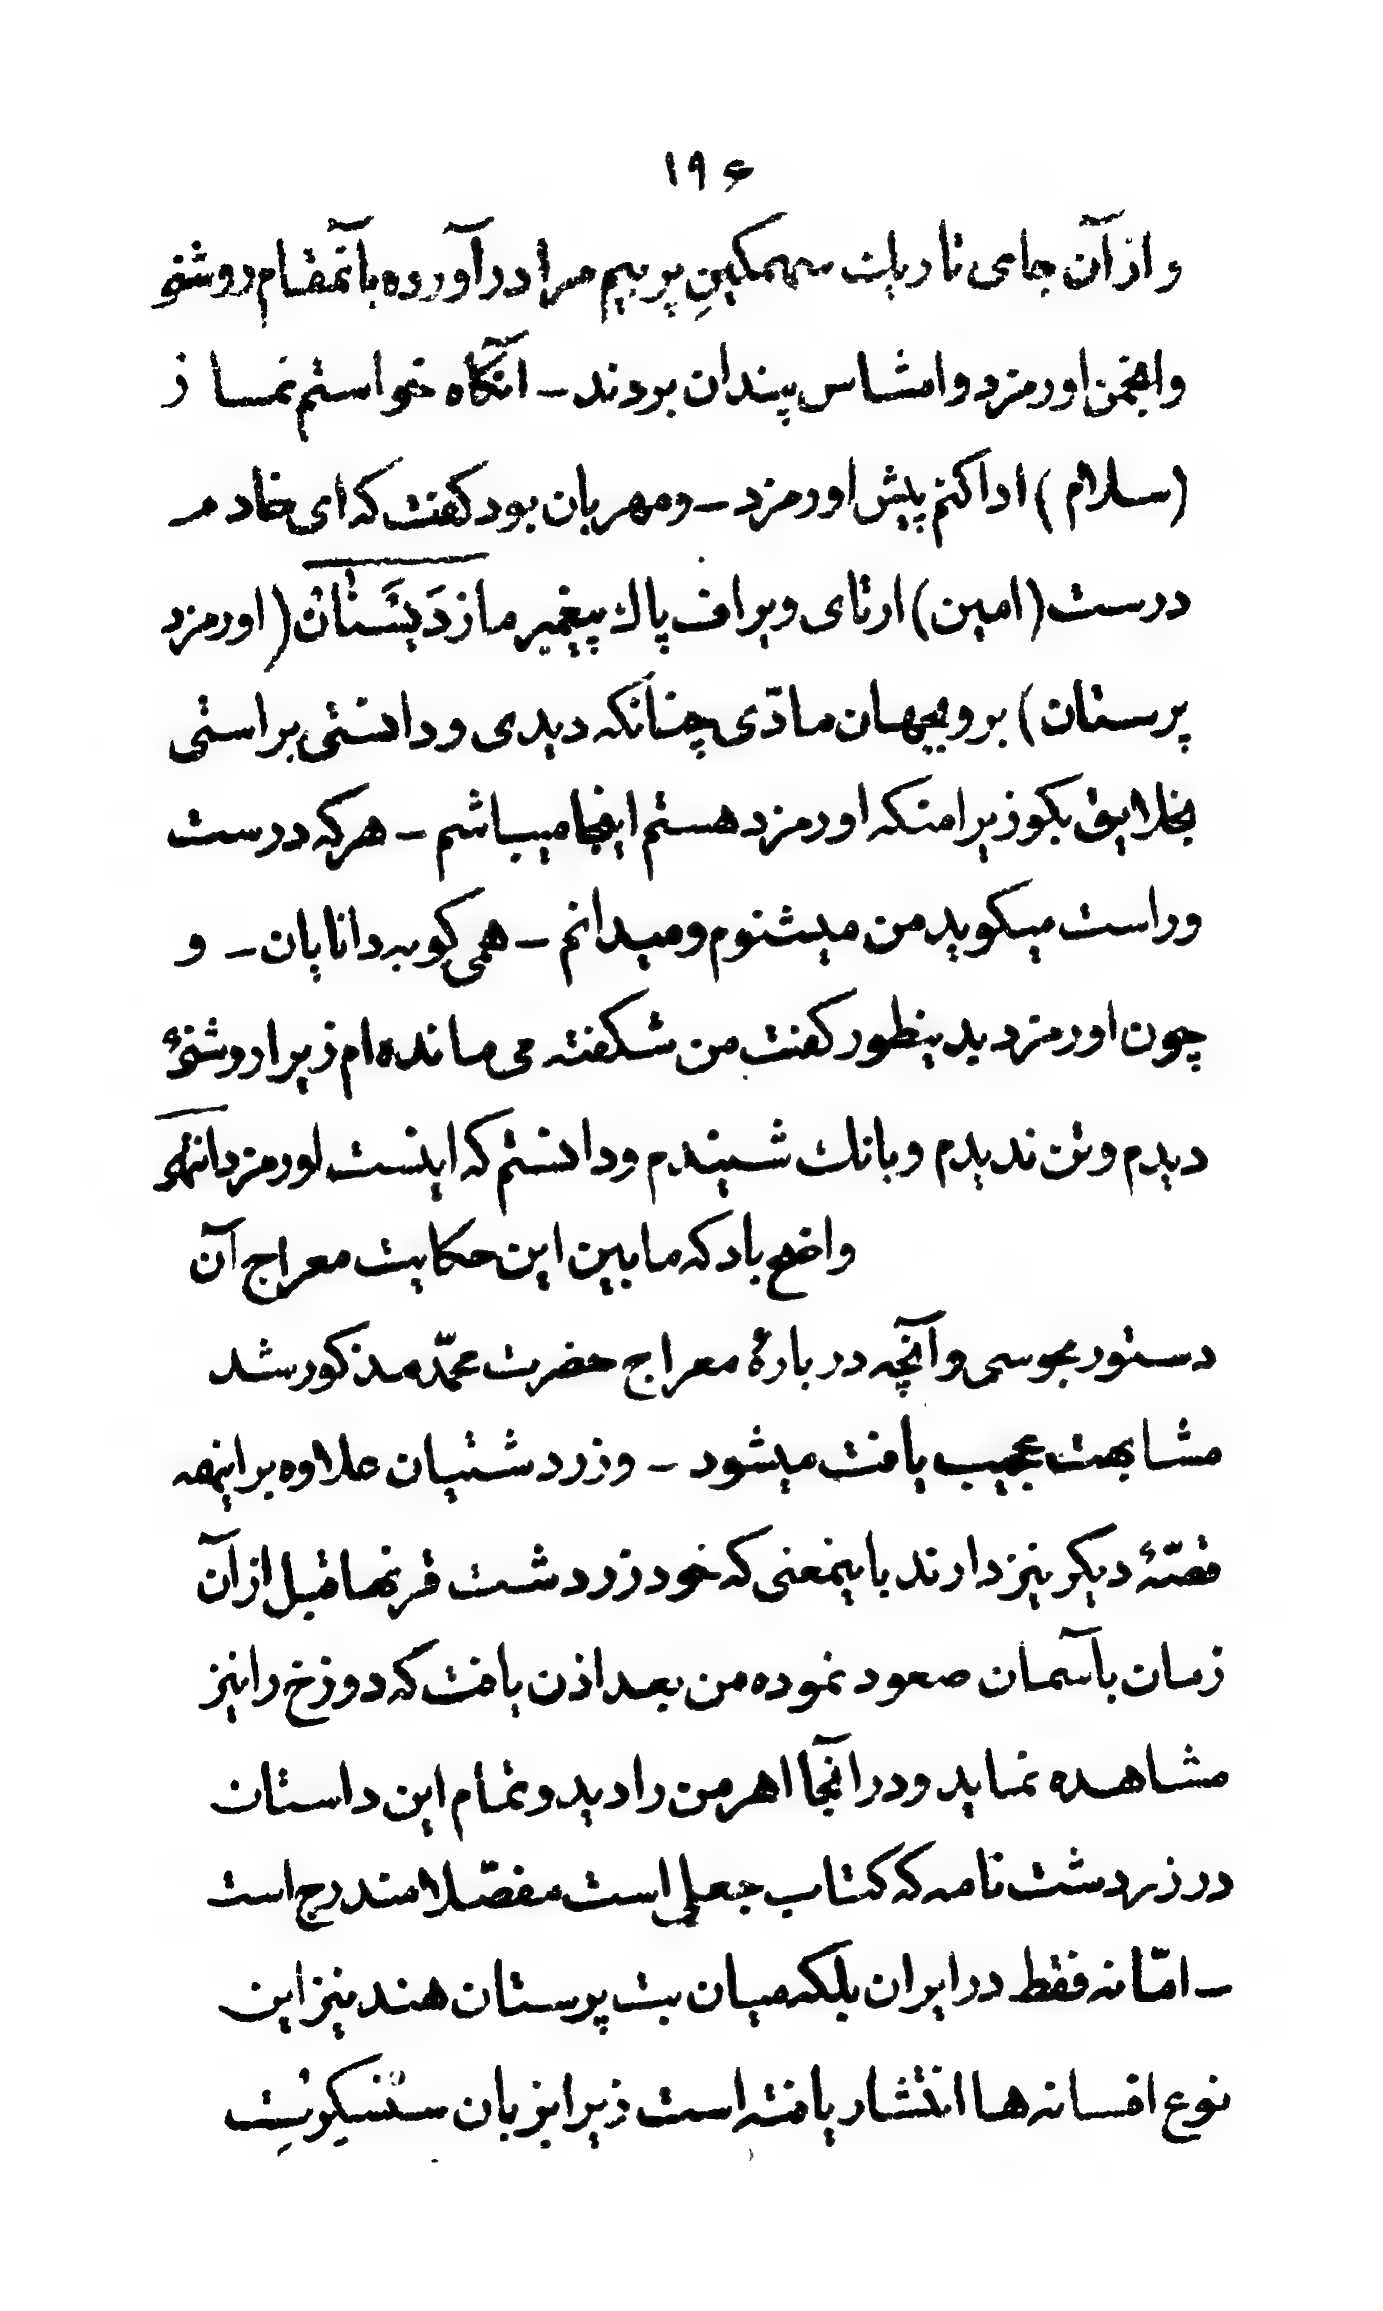 ۱۹۶
و از آن جای تاریک سهمکینِ پر بیم مرا درآورده بآنمقام روشنی
وانجمن اورمزد و امشاس پندان بردند – آنکاه خواستم نمـسـاز
(سلام) ادا کنم پیش اورمزد – و مهربان بود کفت که ای خادم
درست (امین) ارتای ویراف پاك پیغمبر مازدَیَسَنَان (اورمزد
پرستان) برو بجهان مادّی چنانکه دیدی و دانستی براستی
بخلایق بکو زیرا منکه اورمزد هستم اینجا میباشم – هرکه درست
و راست میکوید من میشنوم و میدانم – همی کو به دانایان – و
چون اورمزد بدینطور کفت من شکفته می مانده ام زیرا روشنیٔ
دیدم و تن ندیدم و بانك شنیدم و دانستم که اینست اورمزد انتهی
واضح باد که ما بین این حکایت معراج آن
دستور مجوسی و آنچه در بارهٔ معراج حضرت محمّد مذکور شد
مشابهت عجیب یافت میشود – و زردشتیان علاوه بر اینهمه
قصّهٔ دیکر نیز دارند باینمعنی که خود زردشت قرنها قبل از آن
زمان بآسمان صعود نموده من بعد اذن یافت که دوزخ را نیز
مشاهده نماید و در آنجا اهرمن را دید و تمام این داستان
در زردشت نامه که کتاب جعلی است مفصّلا مندرج است
– امّا نه فقط در ایران بلکه میان بت پرستان هند نیز این
نوع افسانه ها انتشار یافته است زیرا بزبان سنسکریت